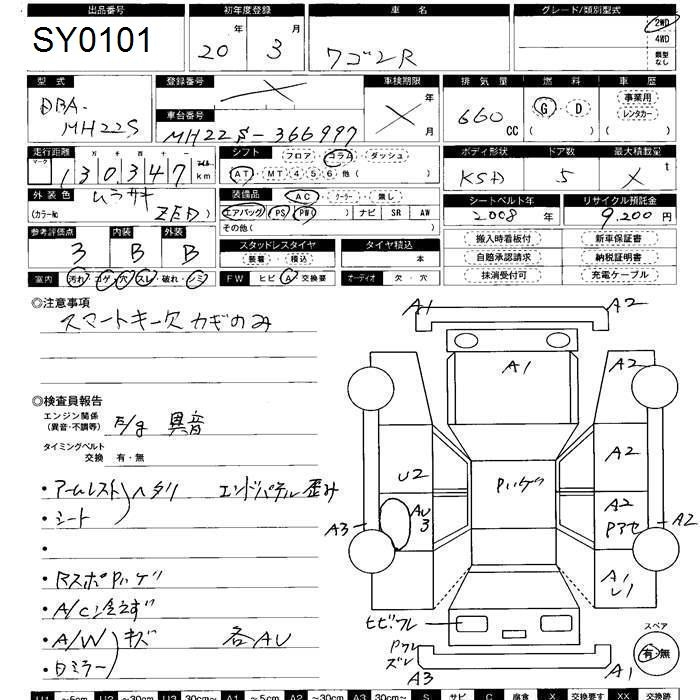 出品番号 初年度登録 車名 グレード/類別型式
SY0101 20年 3月 ワゴンR 2WD
4WD
類型なし
型式 登録番号 車検期限 排気量 燃料 車歴
DBA-MH22S × × 年 月 660cc G・D ( ) 事業用 レンタカー ( )
車台番号
MH22S-366997
走行距離 シフト フロア・コラム・ダッシュ ボディ形状 ドア数 最大積載量
マーク 十万千 130347 マイル km AT・MT 4 5 6 他( ) 5 × t
外装色 ムラサキ 装備品 AC・クーラー・無し シートベルト年 リサイクル預託金
(カラーNo ZED) エアバッグ( )PS PW( ) ナビ SR AW 2008年 9,200円
その他( )
参考評価点 内装 外装 スタッドレスタイヤ タイヤ積込 搬入時看板付 新車保証書
3 B B 装着・積込 本 自賠承認請求 納税証明書
室内 汚れ・コゲ・穴・スレ・破れ・シミ FW ヒビ・A・交換要 オーディオ 欠・穴 抹消受付可 充電ケーブル
◎注意事項
スマートキー欠 カギのみ
◎検査員報告
エンジン関係
(異音・不調等) E/g 異音
タイミングベルト
交換 有・無
・アームレスト ヘタリ エンドパネル歪み
・シート
・
・Rスポ Pハゲ
・A/C冷えず
・A/W キズ 各AU
・日ミラー
A1 A2
A1 A2
U2 Pハゲ A2
AU3 A2
Pワセ
A3 A2
A1
U1
ヒビワレ
Pワレ
ズレ
A3 A1
スペア
有・無
U1 ～5cm U2 ～30cm U3 30cm～ A1 ～5cm A2 ～30cm A3 30cm～ S サビ C 腐食 X 交換要す XX 交換跡